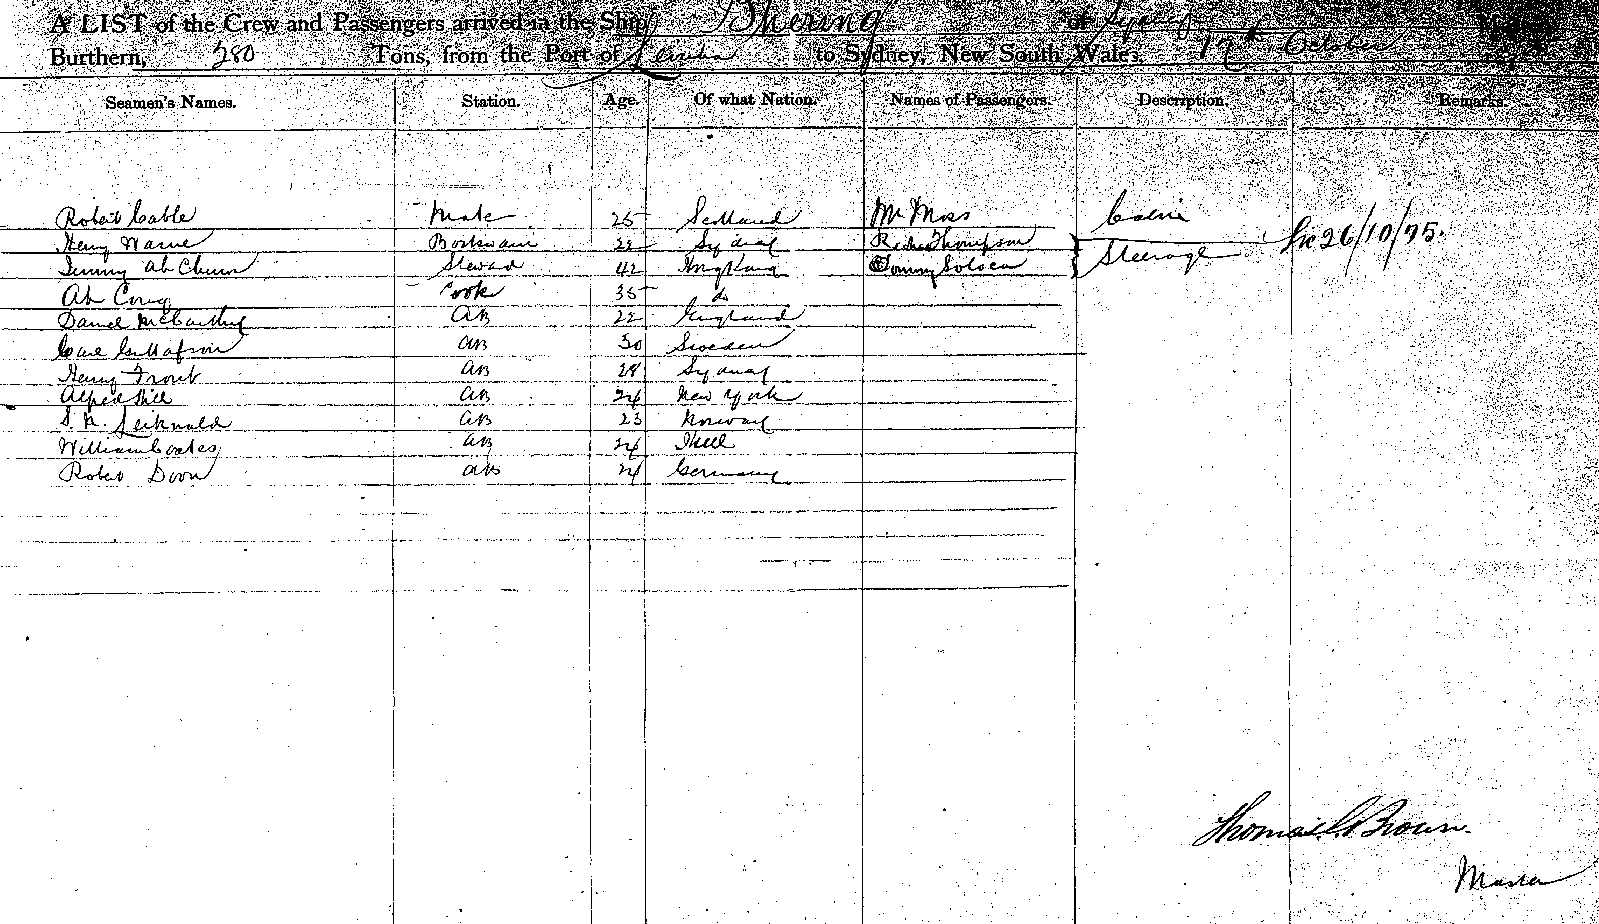 A LIST of the Crew and Passengers arrived in the Ship Bhering of Sydney
Burthern, 280 Tons, from the Port of to Sydney, New South Wales. 17th October
Seamen's Names. Station. Age. Of what Nation. Names of Passengers. Description. Remarks.
Robert Cable Mate 25 Scotland Mr Moss Cabin
Henry Warne Boatswain 22 Sydney Thompson Steerage 26/10/75.
Ah Chum Steward 42 Hong Kong Tommy Soloea
Ah Cong Cook 35 do
Daniel McCarthy AB 22 England
Carl Gustafson AB 30 Sweden
Henry Trout AB 28 Sydney
Alfred Hill AB 24 New York
S. N. AB 23 Norway
William Coates AB 24 Hull
Robert Doon AB 24 Germany
Thomas Brown
Master